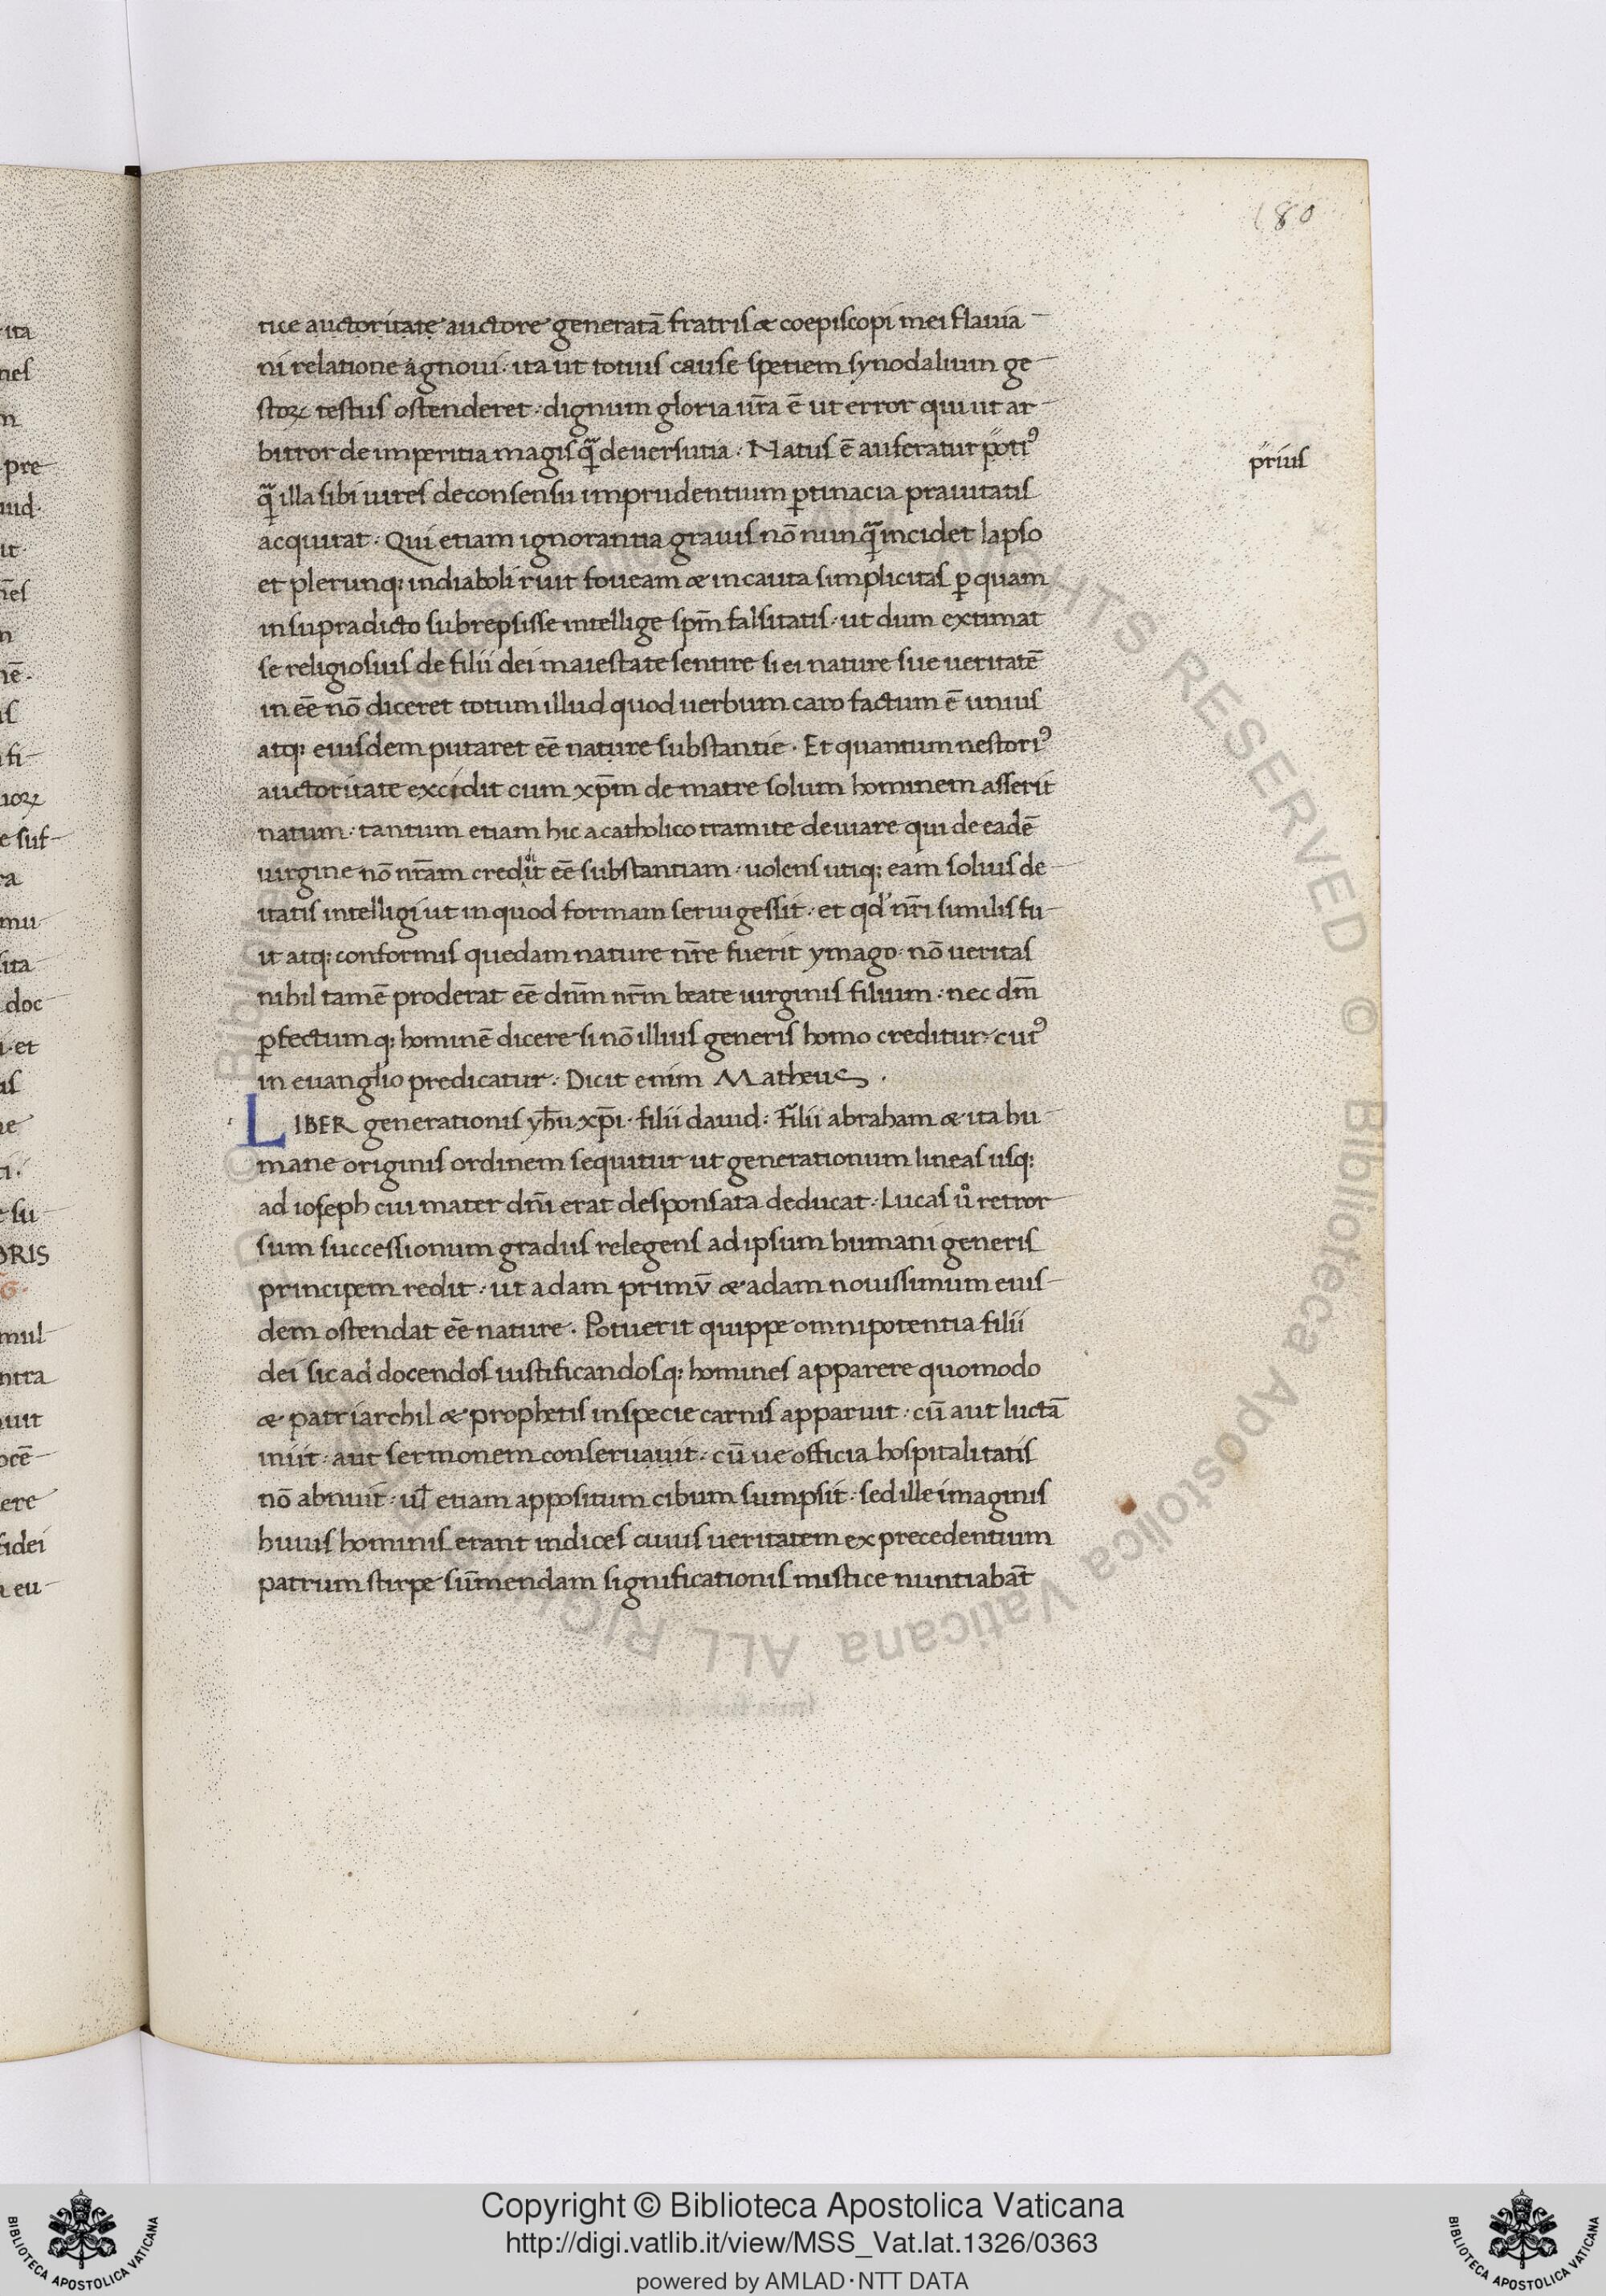 180
tice auctoritate auctore generatā fratris & coepiscopi mei flauia
ni relatione agnoui · ita ut totius cause spetiem synodalium ge
stoꝝ testus ostenderet · dignum gloria ur̄a ē ut error qui ut ar
bitror de imperitia magis qͣ̄ de uersutia · Natus ē auferatur potiꝰ
prius
qͣ̄ illa sibi uires de consensu imprudentium ꝑtinacia prauitatis
acquirat · Qui etiam ignorantia grauis nō nunqͣ̄ incidet lapso
et plerunq; in diaboli ruit foueam & incauta simplicitas ꝑ quam
in supradicto subrepsisse intellige spm̄ falsitatis · ut dum extimat
se religiosius de filii dei maiestate sentire si ei nature sue ueritatē
in eē nō diceret totum illud quod uerbum caro factum ē unius
atq; eiusdem putaret eē nature substantie · Et quantum nestoriꝰ
auctoritate excidit cum xp̄m de matre solum hominem asserit
natum · tantum etiam hic a catholico tramite deuiare qui de eadē
uirgine nō nr̄am credit eē substantiam · uolens utiq; eam solius de
itatis intelligi ut in quod formam serui gessit · et qd' nr̄i similis fu
it atq; conformis quedam nature nr̄e fuerit ymago · nō ueritas
nihil tamē proderat eē dnm̄ nr̄m beate uirginis filium · nec dm̄
ꝑfectum q; hominē dicere si nō illius generis homo creditur · cuiꝰ
in euangl̄io predicatur · Dicit enim Matheus ·
LIBER generationis yh̄u xp̄i · filii dauid · Filii abraham & ita hu
mane originis ordinem sequitur ut generationum lineas usq;
ad ioseph cui mater dn̄i erat desponsata deducat · Lucas uͦ retror
sum successionum gradus relegens ad ipsum humani generis
principem redit · ut adam primū & adam nouissimum eius
dem ostendat eē nature · Potuerit quippe omnipotentia filii
dei sic ad docendos iustificandosq; homines apparere quomodo
& patriarchil & prophetis in specie carnis apparuit · cū aut luctā
iniit · aut sermonem conseruauit · cū ue officia hospitalitatis
nō abnuit · ul̄ etiam appositum cibum sumpsit · sed ille imaginis
huius hominis erant indices cuius ueritatem ex precedentium
patrum stirpe sūmendam significationis mistice nuntiabāt
Copyright © Biblioteca Apostolica Vaticana
http://digi.vatlib.it/view/MSS_Vat.lat.1326/0363
powered by AMLAD·NTT DATA